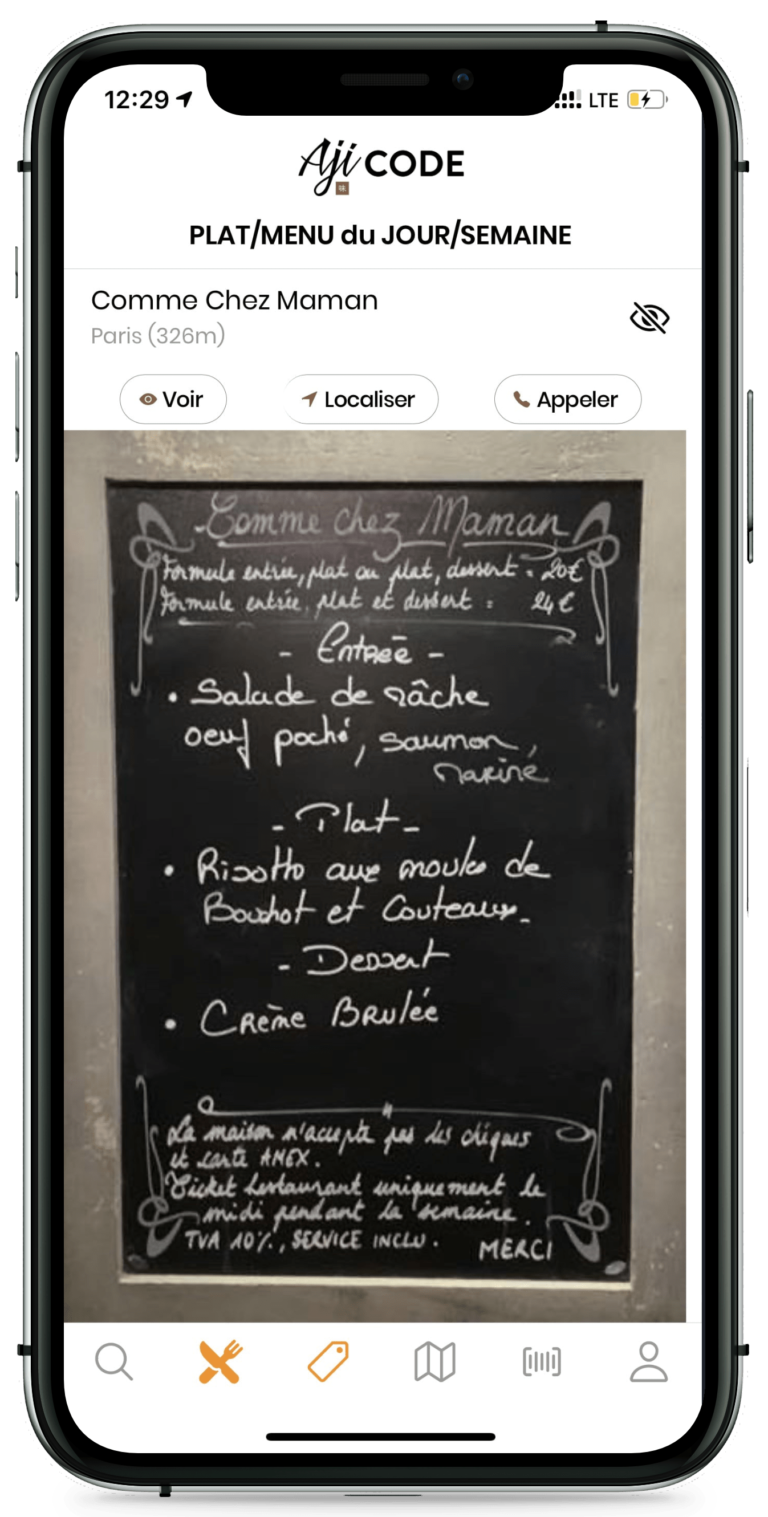 12:29
LTE
Aji CODE
PLAT/MENU du JOUR/SEMAINE
Comme Chez Maman
Paris (326m)
Voir
Localiser
Appeler
Comme chez Maman
Formule entrée, plat ou plat, dessert = 20€
Formule entrée, plat et dessert = 24€
- Entrée -
• Salade de mâche
oeuf poché, saumon,
mariné
- Plat -
• Risotto aux moules de
Bouchot et Couteaux.
- Dessert
• Crème Brulée
La maison n'accepte pas les chèques
et carte AMEX.
Ticket Restaurant uniquement le
midi pendant la semaine.
TVA 10%, SERVICE INCLU.
MERCI